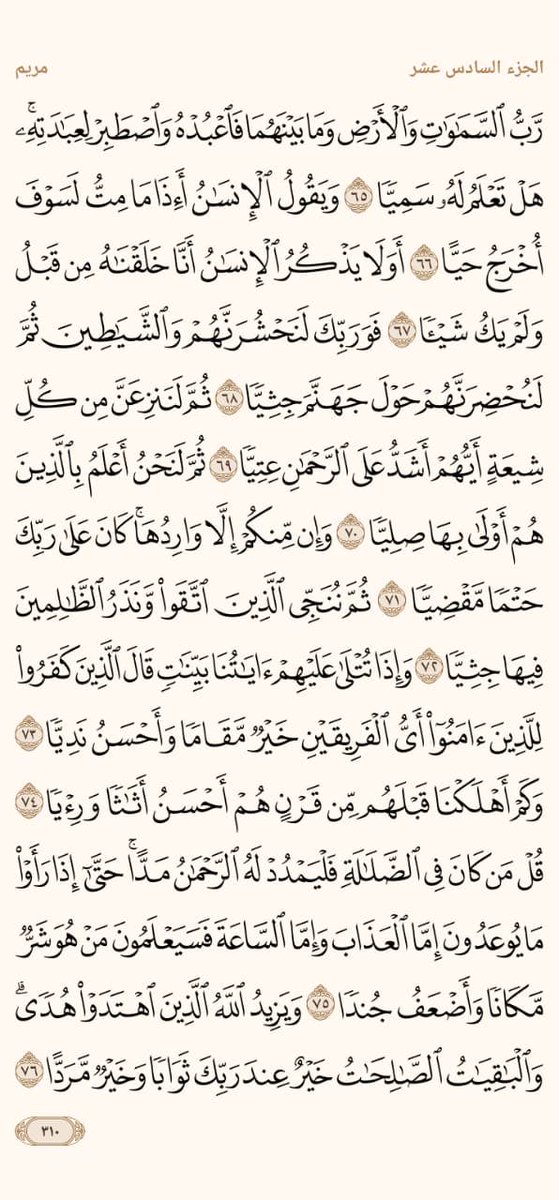 الجزء السادس عشر مريم
رَّبُّ ٱلسَّمَـٰوَٰتِ وَٱلْأَرْضِ وَمَا بَيْنَهُمَا فَٱعْبُدْهُ وَٱصْطَبِرْ لِعِبَـٰدَتِهِۦۚ
هَلْ تَعْلَمُ لَهُۥ سَمِيًّا ٦٥ وَيَقُولُ ٱلْإِنسَـٰنُ أَءِذَا مَا مِتُّ لَسَوْفَ
أُخْرَجُ حَيًّا ٦٦ أَوَلَا يَذْكُرُ ٱلْإِنسَـٰنُ أَنَّا خَلَقْنَـٰهُ مِن قَبْلُ
وَلَمْ يَكُ شَيْـًٔا ٦٧ فَوَرَبِّكَ لَنَحْشُرَنَّهُمْ وَٱلشَّيَـٰطِينَ ثُمَّ
لَنُحْضِرَنَّهُمْ حَوْلَ جَهَنَّمَ جِثِيًّا ٦٨ ثُمَّ لَنَنزِعَنَّ مِن كُلِّ
شِيعَةٍ أَيُّهُمْ أَشَدُّ عَلَى ٱلرَّحْمَـٰنِ عِتِيًّا ٦٩ ثُمَّ لَنَحْنُ أَعْلَمُ بِٱلَّذِينَ
هُمْ أَوْلَىٰ بِهَا صِلِيًّا ٧٠ وَإِن مِّنكُمْ إِلَّا وَارِدُهَاۚ كَانَ عَلَىٰ رَبِّكَ
حَتْمًا مَّقْضِيًّا ٧١ ثُمَّ نُنَجِّى ٱلَّذِينَ ٱتَّقَوا۟ وَّنَذَرُ ٱلظَّـٰلِمِينَ
فِيهَا جِثِيًّا ٧٢ وَإِذَا تُتْلَىٰ عَلَيْهِمْ ءَايَـٰتُنَا بَيِّنَـٰتٍ قَالَ ٱلَّذِينَ كَفَرُوا۟
لِلَّذِينَ ءَامَنُوٓا۟ أَىُّ ٱلْفَرِيقَيْنِ خَيْرٌ مَّقَامًا وَأَحْسَنُ نَدِيًّا ٧٣
وَكَمْ أَهْلَكْنَا قَبْلَهُم مِّن قَرْنٍ هُمْ أَحْسَنُ أَثَـٰثًا وَرِءْيًا ٧٤
قُلْ مَن كَانَ فِى ٱلضَّلَـٰلَةِ فَلْيَمْدُدْ لَهُ ٱلرَّحْمَـٰنُ مَدًّاۚ حَتَّىٰٓ إِذَا رَأَوْا۟
مَا يُوعَدُونَ إِمَّا ٱلْعَذَابَ وَإِمَّا ٱلسَّاعَةَ فَسَيَعْلَمُونَ مَنْ هُوَ شَرٌّ
مَّكَانًا وَأَضْعَفُ جُندًا ٧٥ وَيَزِيدُ ٱللَّهُ ٱلَّذِينَ ٱهْتَدَوْا۟ هُدًىۗ
وَٱلْبَـٰقِيَـٰتُ ٱلصَّـٰلِحَـٰتُ خَيْرٌ عِندَ رَبِّكَ ثَوَابًا وَخَيْرٌ مَّرَدًّا ٧٦
٣١٠